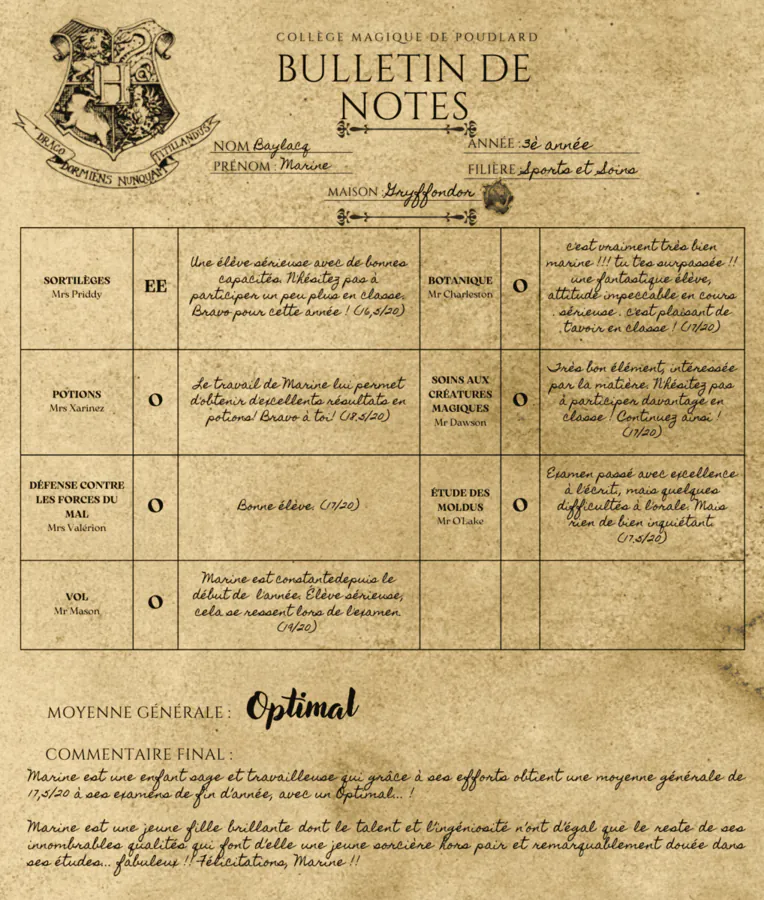 COLLÈGE MAGIQUE DE POUDLARD
BULLETIN DE
NOTES
DRACO
DORMIENS NUNQUAM
TITILLANDUS
H
NOM Baylacq
PRÉNOM : Marine
ANNÉE : 3è année
FILIÈRE : Sports et Soins
MAISON : Gryffondor
SORTILÈGES
Mrs Priddy
EE
Une élève sérieuse avec de bonnes
capacités. N'hésitez pas à
participer un peu plus en classe.
Bravo pour cette année ! (16,5/20)
BOTANIQUE
Mr Charleston
O
c'est vraiment très bien
marine !!! tu t'es surpassée !!
une fantastique élève,
attitude impeccable en cours
. sérieuse . c'est plaisant de
t'avoir en classe ! (17/20)
POTIONS
Mrs Xarinez
O
Le travail de Marine lui permet
d'obtenir d'excellents résultats en
potions! Bravo à toi! (18,5/20)
SOINS AUX
CRÉATURES
MAGIQUES
Mr Dawson
O
Très bon élément, intéressée
par la matière. N'hésitez pas
à participer davantage en
classe ! Continuez ainsi !
(17/20)
DÉFENSE CONTRE
LES FORCES DU
MAL
Mrs Valérion
O
Bonne élève. (17/20)
ÉTUDE DES
MOLDUS
Mr O'Lake
O
Examen passé avec excellence
à l'écrit, mais quelques
difficultés à l'orale. Mais
rien de bien inquiétant.
(17,5/20)
VOL
Mr Mason
O
Marine est constantedepuis le
début de l'année. Élève sérieuse,
cela se ressent lors de l'examen.
(19/20)
MOYENNE GÉNÉRALE : Optimal
COMMENTAIRE FINAL :
Marine est une enfant sage et travailleuse qui grâce à ses efforts obtient une moyenne générale de
17,5/20 à ses examens de fin d'année, avec un Optimal... !
Marine est une jeune fille brillante dont le talent et l'ingéniosité n'ont d'égal que le reste de ses
innombrables qualités qui font d'elle une jeune sorcière hors pair et remarquablement douée dans
ses études... fabuleux !! Félicitations, Marine !!